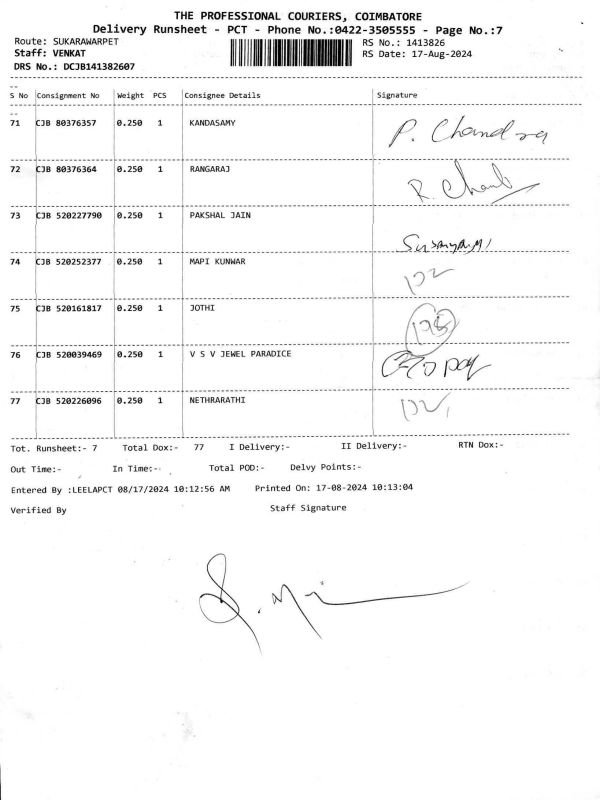 THE PROFESSIONAL COURIERS, COIMBATORE
Delivery Runsheet - PCT - Phone No.:0422-3505555 - Page No.:7
Route: SUKARAWARPET RS No.: 1413826
Staff: VENKAT RS Date: 17-Aug-2024
DRS No.: DCJB141382607
--
S No Consignment No Weight PCS Consignee Details Signature
--
71 CJB 80376357 0.250 1 KANDASAMY P. Chandra
72 CJB 80376364 0.250 1 RANGARAJ
73 CJB 520227790 0.250 1 PAKSHAL JAIN
74 CJB 520252377 0.250 1 MAPI KUNWAR
75 CJB 520161817 0.250 1 JOTHI
76 CJB 520039469 0.250 1 V S V JEWEL PARADICE
77 CJB 520226096 0.250 1 NETHRARATHI
Tot. Runsheet:- 7 Total Dox:- 77 I Delivery:- II Delivery:- RTN Dox:-
Out Time:- In Time:-- Total POD:- Delvy Points:-
Entered By :LEELAPCT 08/17/2024 10:12:56 AM Printed On: 17-08-2024 10:13:04
Verified By Staff Signature